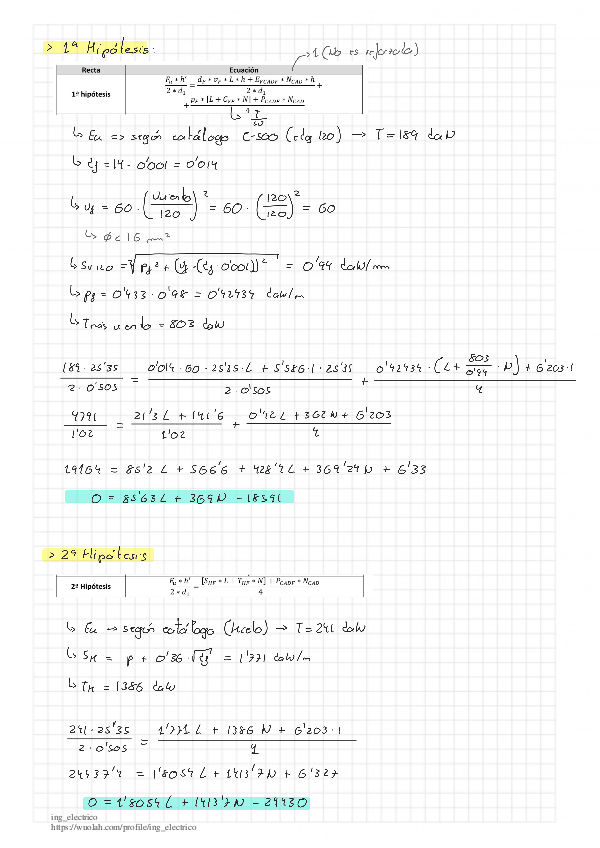 > 1ª Hipótesis:
1 (No es reforzado)
Recta Ecuación
1ª hipótesis
F_u * h' / 2 * d_1 = d_F * v_F * L * h + E_VCADF * N_CAD * h / 2 * d_1 +
+ p_F * [L + C_EF * N] + P_CADF * N_CAD / 4
↳ Eu => según catálogo C-500 (rdg 120) → T = 189 daN
↳ df = 14 · 0'001 = 0'014
↳ vf = 60 · (Vviento / 120)² = 60 · (120 / 120)² = 60
↳ φ < 16 mm²
↳ Sv120 = √(Pf² + (vf · (df · 0'001))²) = 0'94 daN/m
↳ pf = 0'433 · 0'98 = 0'42434 daN/m
↳ Tmás viento = 803 daN
189 · 25'35 / 2 · 0'505 = 0'014 · 60 · 25'35 · L + 5'586 · 1 · 25'35 / 2 · 0'505 + 0'42434 · (L + 803 / 0'94 · N) + 6'203 · 1 / 4
4791 / 1'02 = 21'3 L + 141'6 / 1'02 + 0'42 L + 362 N + 6'203 / 4
19164 = 85'2 L + 566'6 + 428'4 L + 369'24 N + 6'33
0 = 85'63 L + 369 N - 18591
> 2ª Hipótesis
2ª Hipótesis
F_u * h' / 2 * d_1 = [S_HF * L + T_HF * N] + P_CADF * N_CAD / 4
↳ Eu → según catálogo (Hielo) → T = 241 daN
↳ SH = p + 0'36 √df = 1'771 daN/m
↳ TH = 1386 daN
241 · 25'35 / 2 · 0'505 = 1'771 L + 1386 N + 6'203 · 1 / 4
24437'4 = 1'8054 L + 1413'7 N + 6'327
0 = 1'8054 L + 1413'7 N - 24430
ing_electrico
https://wuolah.com/profile/ing_electrico